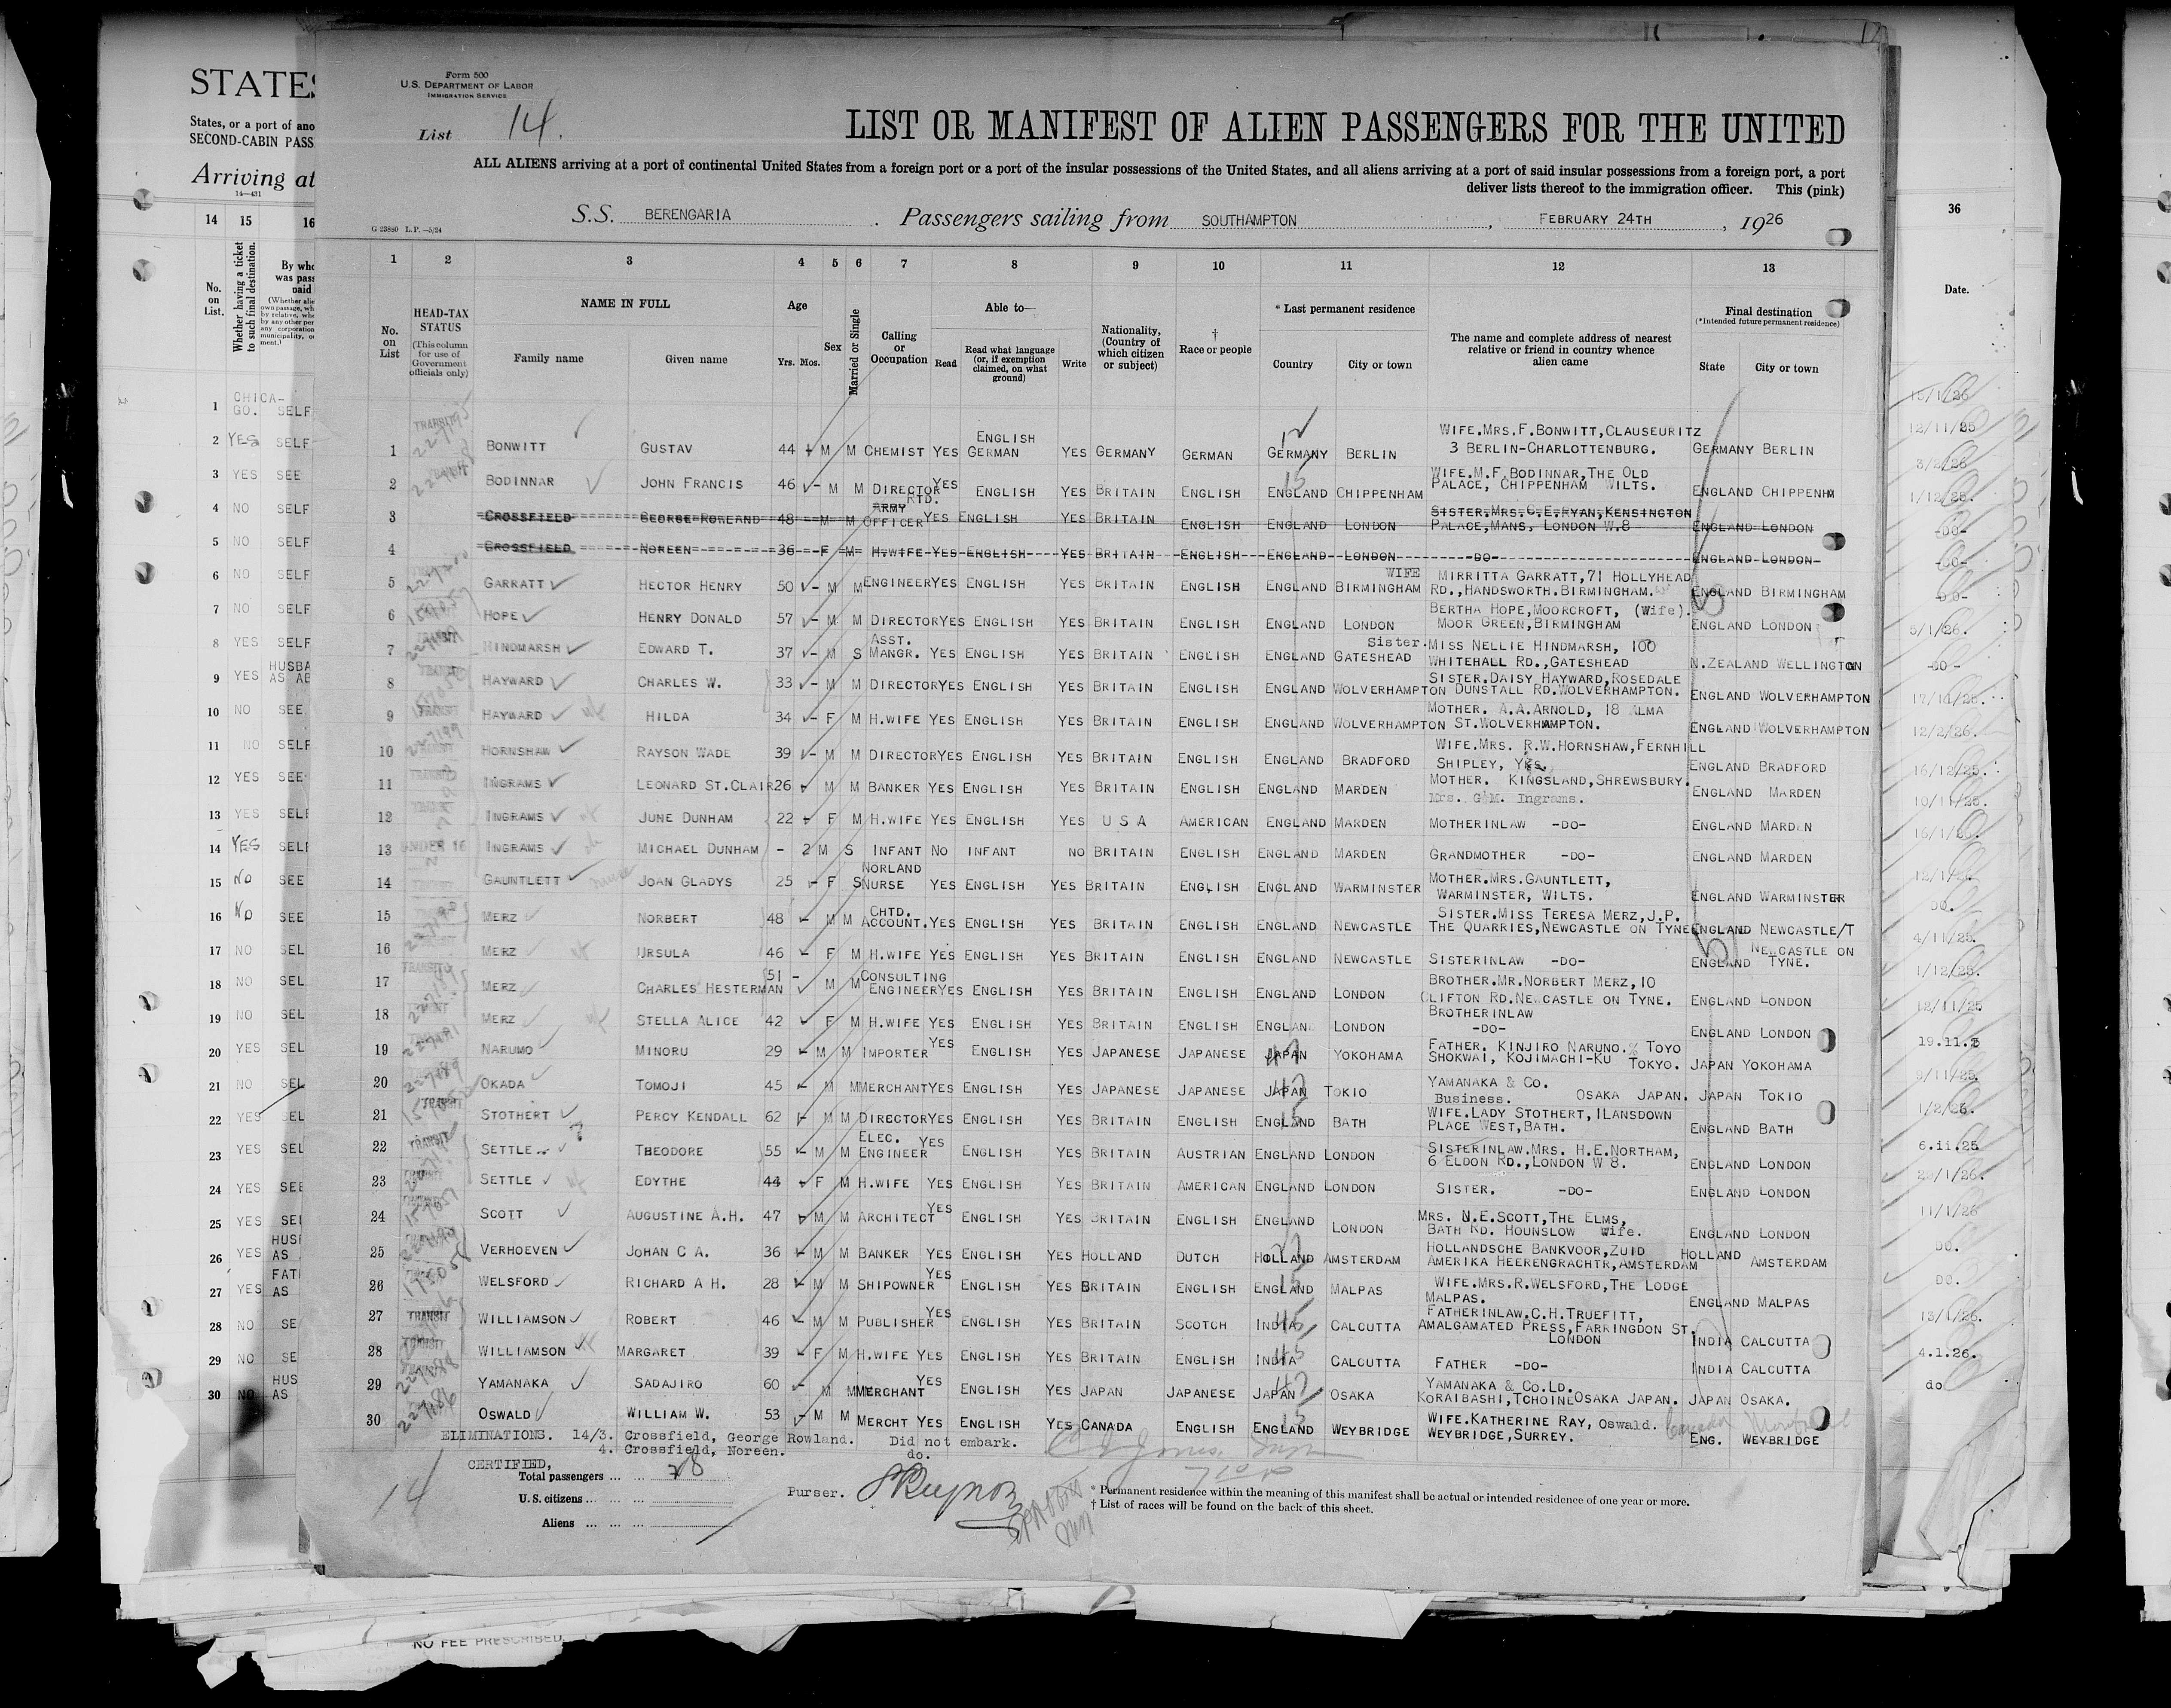 STATES
States, or a port of ano
SECOND-CABIN PASS
Arriving at
14—431
14 15 16
No. on List.
Whether having a ticket to such final destination.
By who was pass paid
1 CHICA-GO. SELF
2 YES SELF
3 YES SEE
4 NO SELF
5 NO SELF
6 NO SELF
7 NO SELF
8 YES SELF
9 YES HUSBA AS AB
10 NO SEE
11 NO SELF
12 YES SEE
13 YES SELF
14 YES SELF
15 NO SEE
16 NO SEE
17 NO SEL
18 NO SEL
19 NO SEL
20 YES SEL
21 NO SEL
22 YES SEL
23 YES SEL
24 YES SEE
25 YES SEL
26 YES HUS AS
27 YES FAT AS
28 NO SE
29 NO SE
30 NO HUS AS
Form 500
U.S. DEPARTMENT OF LABOR
IMMIGRATION SERVICE
List 14.
LIST OR MANIFEST OF ALIEN PASSENGERS FOR THE UNITED
ALL ALIENS arriving at a port of continental United States from a foreign port or a port of the insular possessions of the United States, and all aliens arriving at a port of said insular possessions from a foreign port, a port
deliver lists thereof to the immigration officer. This (pink)
S.S. BERENGARIA . Passengers sailing from SOUTHAMPTON , FEBRUARY 24TH , 1926
G 23880 L.P.—5/24
1 2 3 4 5 6 7 8 9 10 11 12 13
No. on List
HEAD-TAX STATUS (This column for use of Government officials only)
NAME IN FULL
Family name Given name
Age Yrs. Mos.
Sex
Married or Single
Calling or Occupation
Able to— Read Read what language (or, if exemption claimed, on what ground) Write
Nationality, (Country of which citizen or subject)
† Race or people
* Last permanent residence Country City or town
The name and complete address of nearest relative or friend in country whence alien came
Final destination (*Intended future permanent residence) State City or town
1 BONWITT GUSTAV 44 M M CHEMIST YES ENGLISH GERMAN YES GERMANY GERMAN GERMANY BERLIN WIFE.MRS.F.BONWITT,CLAUSEURITZ 3 BERLIN-CHARLOTTENBURG. GERMANY BERLIN
2 BODINNAR JOHN FRANCIS 46 M M DIRECTOR YES ENGLISH YES BRITAIN ENGLISH ENGLAND CHIPPENHAM WIFE.M.F.BODINNAR,THE OLD PALACE, CHIPPENHAM WILTS. ENGLAND CHIPPENHM
3 CROSSFIELD GEORGE ROWLAND 48 M M RTD. ARMY OFFICER YES ENGLISH YES BRITAIN ENGLISH ENGLAND LONDON SISTER.MRS.C.E.RYAN,KENSINGTON PALACE,MANS, LONDON W.8 ENGLAND LONDON
4 CROSSFIELD NOREEN 36 F M H.WIFE YES ENGLISH YES BRITAIN ENGLISH ENGLAND LONDON -DO- ENGLAND LONDON
5 GARRATT HECTOR HENRY 50 M M ENGINEER YES ENGLISH YES BRITAIN ENGLISH ENGLAND BIRMINGHAM WIFE MIRRITTA GARRATT,71 HOLLYHEAD RD.,HANDSWORTH.BIRMINGHAM. ENGLAND BIRMINGHAM
6 HOPE HENRY DONALD 57 M M DIRECTOR YES ENGLISH YES BRITAIN ENGLISH ENGLAND LONDON BERTHA HOPE,MOORCROFT, (Wife). MOOR GREEN,BIRMINGHAM ENGLAND LONDON
7 HINDMARSH EDWARD T. 37 M S ASST. MANGR. YES ENGLISH YES BRITAIN ENGLISH ENGLAND GATESHEAD Sister.MISS NELLIE HINDMARSH, 100 WHITEHALL RD.,GATESHEAD N.ZEALAND WELLINGTON
8 HAYWARD CHARLES W. 33 M M DIRECTOR YES ENGLISH YES BRITAIN ENGLISH ENGLAND WOLVERHAMPTON SISTER.DAISY HAYWARD,ROSEDALE DUNSTALL RD.WOLVERHAMPTON. ENGLAND WOLVERHAMPTON
9 HAYWARD HILDA 34 F M H.WIFE YES ENGLISH YES BRITAIN ENGLISH ENGLAND WOLVERHAMPTON MOTHER. A.A.ARNOLD, 18 ALMA ST.WOLVERHAMPTON. ENGLAND WOLVERHAMPTON
10 HORNSHAW RAYSON WADE 39 M M DIRECTOR YES ENGLISH YES BRITAIN ENGLISH ENGLAND BRADFORD WIFE.MRS. R.W.HORNSHAW,FERNHILL SHIPLEY, YKS. ENGLAND BRADFORD
11 INGRAMS LEONARD ST.CLAIR 26 M M BANKER YES ENGLISH YES BRITAIN ENGLISH ENGLAND MARDEN MOTHER. KINGSLAND,SHREWSBURY. Mrs. G.M. Ingrams. ENGLAND MARDEN
12 INGRAMS JUNE DUNHAM 22 F M H.WIFE YES ENGLISH YES U S A AMERICAN ENGLAND MARDEN MOTHERINLAW -DO- ENGLAND MARDEN
13 UNDER 16 INGRAMS MICHAEL DUNHAM - 2 M S INFANT NO INFANT NO BRITAIN ENGLISH ENGLAND MARDEN GRANDMOTHER -DO- ENGLAND MARDEN
14 GAUNTLETT JOAN GLADYS 25 F S NORLAND NURSE YES ENGLISH YES BRITAIN ENGLISH ENGLAND WARMINSTER MOTHER.MRS.GAUNTLETT, WARMINSTER, WILTS. ENGLAND WARMINSTER
15 MERZ NORBERT 48 M M CHTD. ACCOUNT. YES ENGLISH YES BRITAIN ENGLISH ENGLAND NEWCASTLE SISTER.MISS TERESA MERZ,J.P. THE QUARRIES,NEWCASTLE ON TYNE ENGLAND NEWCASTLE/T
16 MERZ URSULA 46 F M H.WIFE YES ENGLISH YES BRITAIN ENGLISH ENGLAND NEWCASTLE SISTERINLAW -DO- ENGLAND NEWCASTLE ON TYNE.
17 MERZ CHARLES HESTERMAN 51 M M CONSULTING ENGINEER YES ENGLISH YES BRITAIN ENGLISH ENGLAND LONDON BROTHER.MR.NORBERT MERZ,10 CLIFTON RD.NEWCASTLE ON TYNE. ENGLAND LONDON
18 MERZ STELLA ALICE 42 F M H.WIFE YES ENGLISH YES BRITAIN ENGLISH ENGLAND LONDON BROTHERINLAW -DO- ENGLAND LONDON
19 NARUMO MINORU 29 M M IMPORTER YES ENGLISH YES JAPANESE JAPANESE JAPAN YOKOHAMA FATHER. KINJIRO NARUNO.% TOYO SHOKWAI, KOJIMACHI-KU TOKYO. JAPAN YOKOHAMA
20 OKADA TOMOJI 45 M M MERCHANT YES ENGLISH YES JAPANESE JAPANESE JAPAN TOKIO YAMANAKA & CO. Business. OSAKA JAPAN. JAPAN TOKIO
21 STOTHERT PERCY KENDALL 62 M M DIRECTOR YES ENGLISH YES BRITAIN ENGLISH ENGLAND BATH WIFE.LADY STOTHERT, LANSDOWN PLACE WEST,BATH. ENGLAND BATH
22 TRANSIT SETTLE THEODORE 55 M M ELEC. ENGINEER YES ENGLISH YES BRITAIN AUSTRIAN ENGLAND LONDON SISTERINLAW.MRS. H.E.NORTHAM, 6 ELDON RD.,LONDON W 8. ENGLAND LONDON
23 SETTLE EDYTHE 44 F M H.WIFE YES ENGLISH YES BRITAIN AMERICAN ENGLAND LONDON SISTER. -DO- ENGLAND LONDON
24 SCOTT AUGUSTINE A.H. 47 M M ARCHITECT YES ENGLISH YES BRITAIN ENGLISH ENGLAND LONDON MRS. N.E.SCOTT,THE ELMS, BATH RD. HOUNSLOW Wife. ENGLAND LONDON
25 VERHOEVEN JOHAN C A. 36 M M BANKER YES ENGLISH YES HOLLAND DUTCH HOLLAND AMSTERDAM HOLLANDSCHE BANKVOOR,ZUID AMERIKA HEERENGRACHTR,AMSTERDAM HOLLAND AMSTERDAM
26 WELSFORD RICHARD A H. 28 M M SHIPOWNER YES ENGLISH YES BRITAIN ENGLISH ENGLAND MALPAS WIFE.MRS.R.WELSFORD,THE LODGE MALPAS. ENGLAND MALPAS
27 TRANSIT WILLIAMSON ROBERT 46 M M PUBLISHER YES ENGLISH YES BRITAIN SCOTCH INDIA CALCUTTA FATHERINLAW.C.H.TRUEFITT, AMALGAMATED PRESS,FARRINGDON ST. LONDON INDIA CALCUTTA
28 WILLIAMSON MARGARET 39 F M H.WIFE YES ENGLISH YES BRITAIN ENGLISH INDIA CALCUTTA FATHER -DO- INDIA CALCUTTA
29 YAMANAKA SADAJIRO 60 M M MERCHANT YES ENGLISH YES JAPAN JAPANESE JAPAN OSAKA YAMANAKA & CO.LD. KORAIBASHI,TCHOINE OSAKA JAPAN. JAPAN OSAKA.
30 OSWALD WILLIAM W. 53 M M MERCHT YES ENGLISH YES CANADA ENGLISH ENGLAND WEYBRIDGE WIFE.KATHERINE RAY, Oswald. WEYBRIDGE,SURREY. ENG. WEYBRIDGE
ELIMINATIONS. 14/3. Crossfield, George Rowland. Did not embark.
4. Crossfield, Noreen. do.
CERTIFIED,
Total passengers ... ... 28
U.S. citizens ... ... ...
Aliens ... ... ...
14
Purser.
* Permanent residence within the meaning of this manifest shall be actual or intended residence of one year or more.
† List of races will be found on the back of this sheet.
36
Date.
15/1/26
12/11/25
3/2/26
1/12/25.
-DO-
-DO-
-DO-
5/1/26.
-DO-
17/11/25.
12/2/26.
16/12/25.
10/11/25.
16/1/26.
12/1/26.
DO.
4/11/25.
1/12/25.
12/11/25
19.11.25
9/11/25.
1/2/26.
6.11.25
11/1/26
DO.
DO.
13/1/26.
4.1.26.
do
NO FEE PRESCRIBED